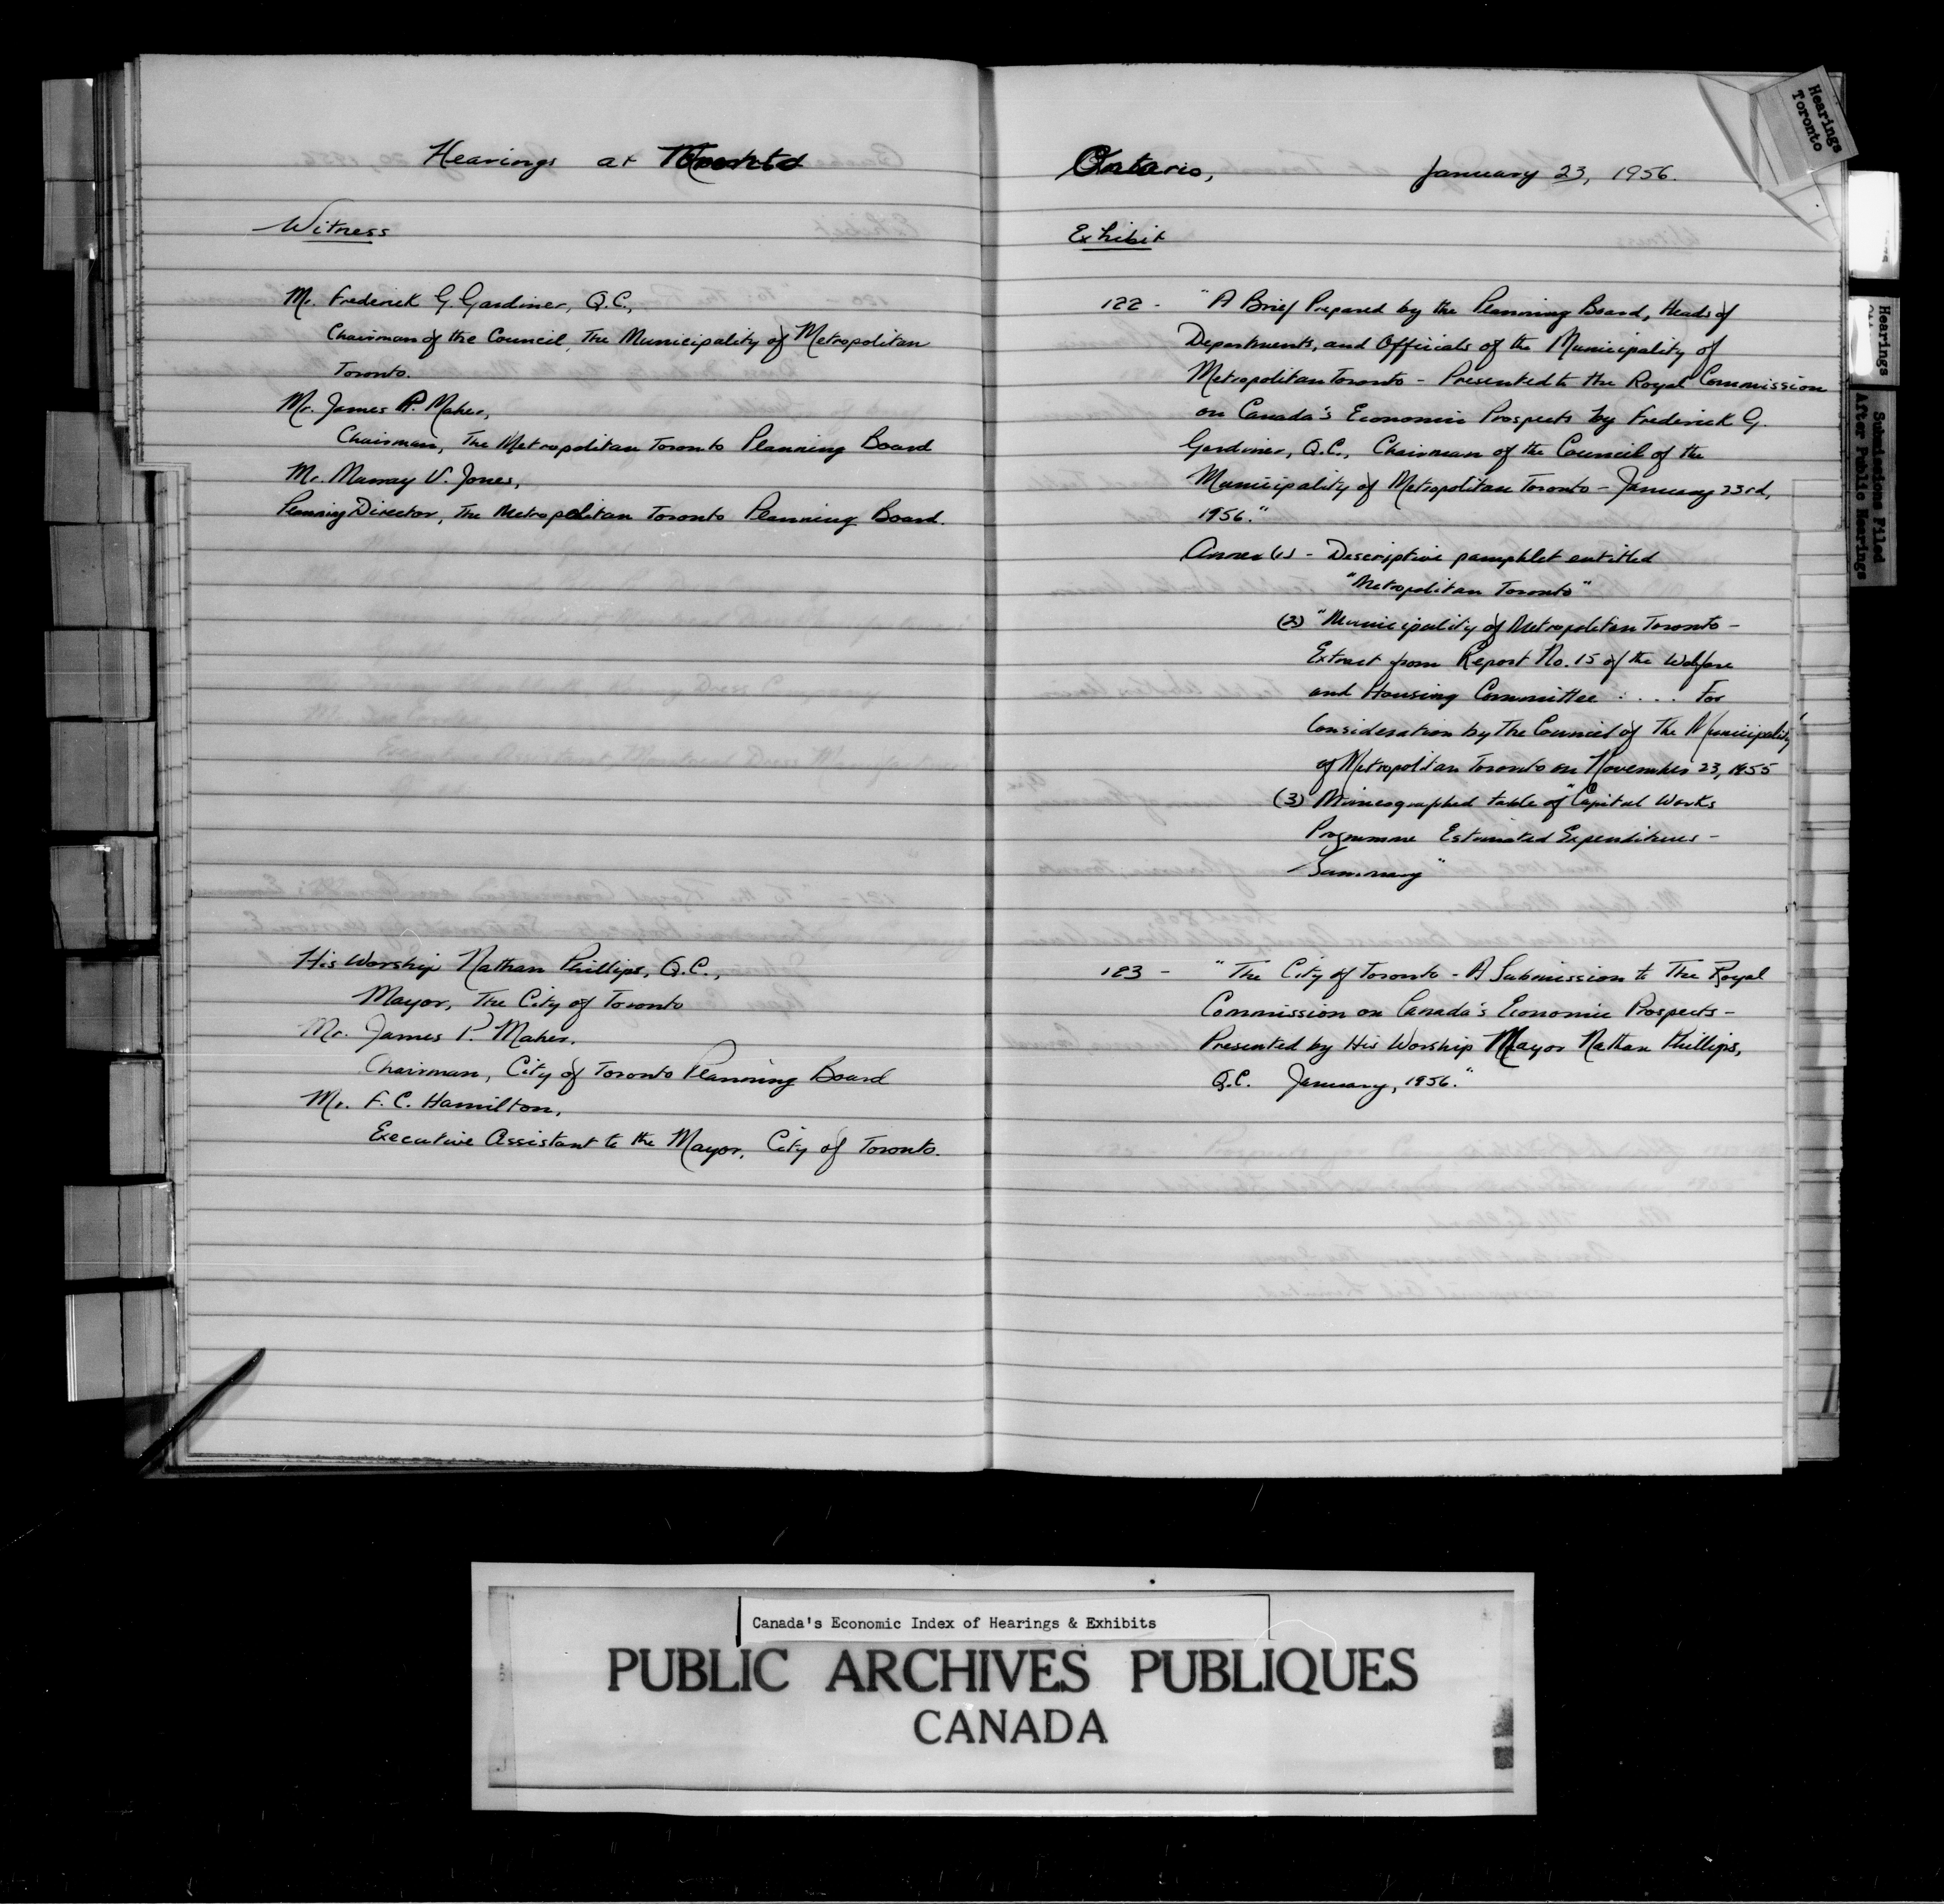 Hearings at Toronto
Witness
Mr. Frederick G. Gardiner, Q.C.,
Chairman of the Council, The Municipality of Metropolitan
Toronto.
Mr. James P. Maher,
Chairman, The Metropolitan Toronto Planning Board
Mr. Murray V. Jones,
Planning Director, The Metropolitan Toronto Planning Board.
His Worship Nathan Phillips, Q.C.,
Mayor, The City of Toronto
Mr. James P. Maher,
Chairman, City of Toronto Planning Board
Mr. F. C. Hamilton,
Executive Assistant to the Mayor, City of Toronto.
Ontario, January 23, 1956.
Exhibit
122 - "A Brief Prepared by the Planning Board, Heads of
Departments, and Officials of the Municipality of
Metropolitan Toronto - Presented to the Royal Commission
on Canada's Economic Prospects by Frederick G.
Gardiner, Q.C., Chairman of the Council of the
Municipality of Metropolitan Toronto - January 23rd,
1956."
Annex (1) - Descriptive pamphlet entitled
"Metropolitan Toronto"
(2) "Municipality of Metropolitan Toronto -
Extract from Report No. 15 of the Welfare
and Housing Committee . . . . For
Consideration by the Council of the Municipality
of Metropolitan Toronto on November 23, 1955"
(3) Mimeographed table of "Capital Works
Programme Estimated Expenditures -
Summary"
123 - "The City of Toronto - A Submission to The Royal
Commission on Canada's Economic Prospects -
Presented by His Worship Mayor Nathan Phillips,
Q.C. January, 1956."
Hearings
Toronto
Hearings
Submissions Filed
After Public Hearings
Canada's Economic Index of Hearings & Exhibits
PUBLIC ARCHIVES PUBLIQUES
CANADA